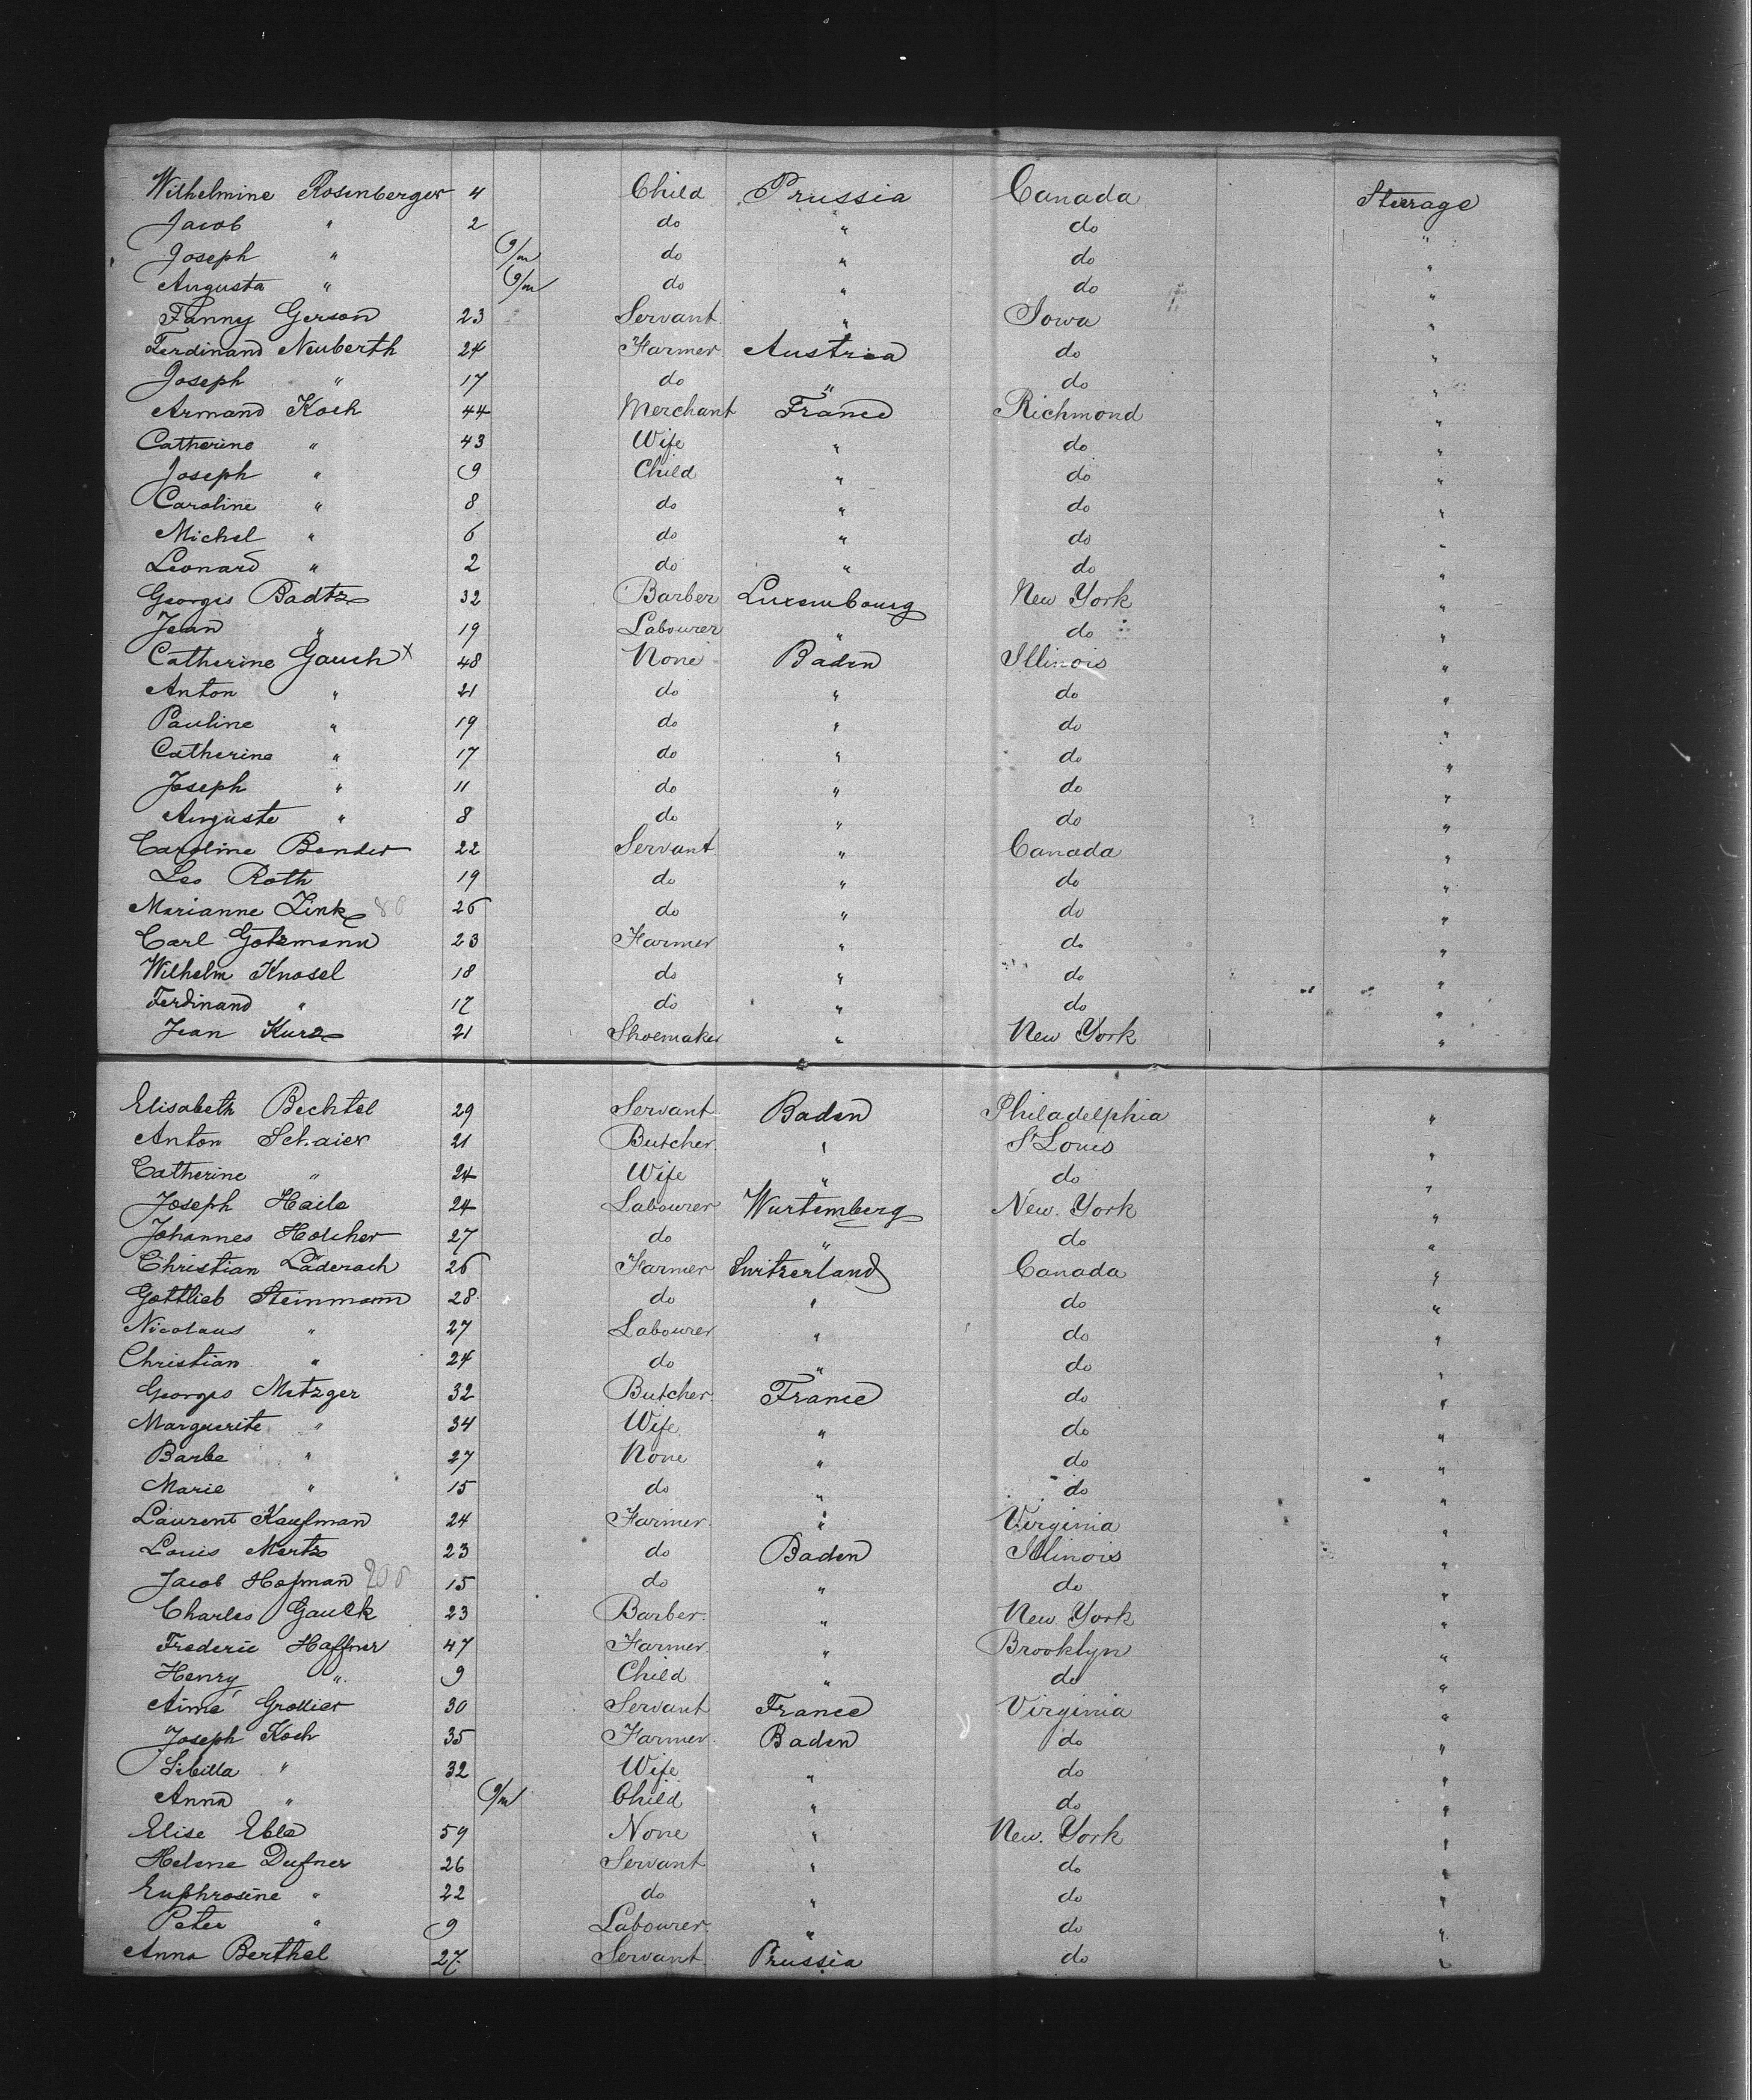 Wilhelmine Rosenberger 4 Child Prussia Canada Steerage
Jacob " 2 do " do "
Joseph " 9/m do " do "
Augusta " 9/m do " do "
Fanny Gerson 23 Servant " Iowa "
Ferdinand Neuberth 24 Farmer Austria do "
Joseph " 17 do " do "
Armand Koch 44 Merchant France Richmond "
Catherine " 43 Wife " do "
Joseph " 9 Child " do "
Caroline " 8 do " do "
Michel " 6 do " do "
Leonard " 2 do " do "
Georges Badtz 32 Barber Luxembourg New York "
Jean " 19 Labourer " do "
Catherine Gauch x 48 None Baden Illinois "
Anton " 21 do " do "
Pauline " 19 do " do "
Catherine " 17 do " do "
Joseph " 11 do " do "
Auguste " 8 do " do "
Caroline Bender 22 Servant " Canada "
Leo Roth 19 do " do "
Marianne Zink 26 do " do "
Carl Gotzmann 23 Farmer " do "
Wilhelm Knosel 18 do " do "
Ferdinand " 17 do " do "
Jean Kurz 21 Shoemaker " New York "
Elisabeth Bechtel 29 Servant Baden Philadelphia "
Anton Schaier 21 Butcher " St Louis "
Catherine " 24 Wife " do "
Joseph Haile 24 Labourer Wurtemberg New York "
Johannes Holcher 27 do " do "
Christian Läderach 26 Farmer Switzerland Canada "
Gottlieb Steinmann 28 do " do "
Nicolaus " 27 Labourer " do "
Christian " 24 do " do "
Georges Metzger 32 Butcher France do "
Marguerite " 34 Wife " do "
Barbe " 27 None " do "
Marie " 15 do " do "
Laurent Kaufman 24 Farmer " Virginia "
Louis Mertz 23 do Baden Illinois "
Jacob Hofman 200 15 do " do "
Charles Gaulk 23 Barber " New York "
Frederic Haffner 47 Farmer " Brooklyn "
Henry " 9 Child " do "
Aimé Grollier 30 Servant France Virginia "
Joseph Koch 35 Farmer Baden do "
Sibilla " 32 Wife " do "
Anna " 9/m Child " do "
Elise Eble 59 None " New York "
Helene Dufner 26 Servant " do "
Euphrosine " 22 do " do "
Peter " 9 Labourer " do "
Anna Berthel 27 Servant Prussia do "